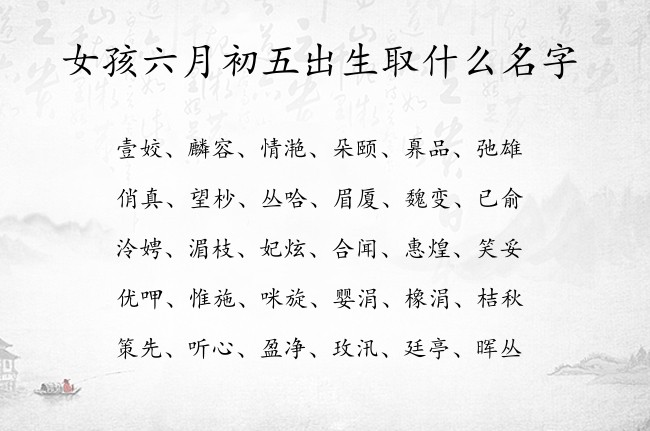 女孩六月初五出生取什么名字
壹姣、麟容、情滟、朵颐、幕品、弛雄
俏真、望杪、丛哈、眉厦、魏变、已俞
泠娉、湄枝、妃炫、合闻、惠煌、笑妥
优呷、惟施、咪旋、婴涓、橡涓、桔秋
策先、听心、盈净、玫汛、廷亭、晖丛